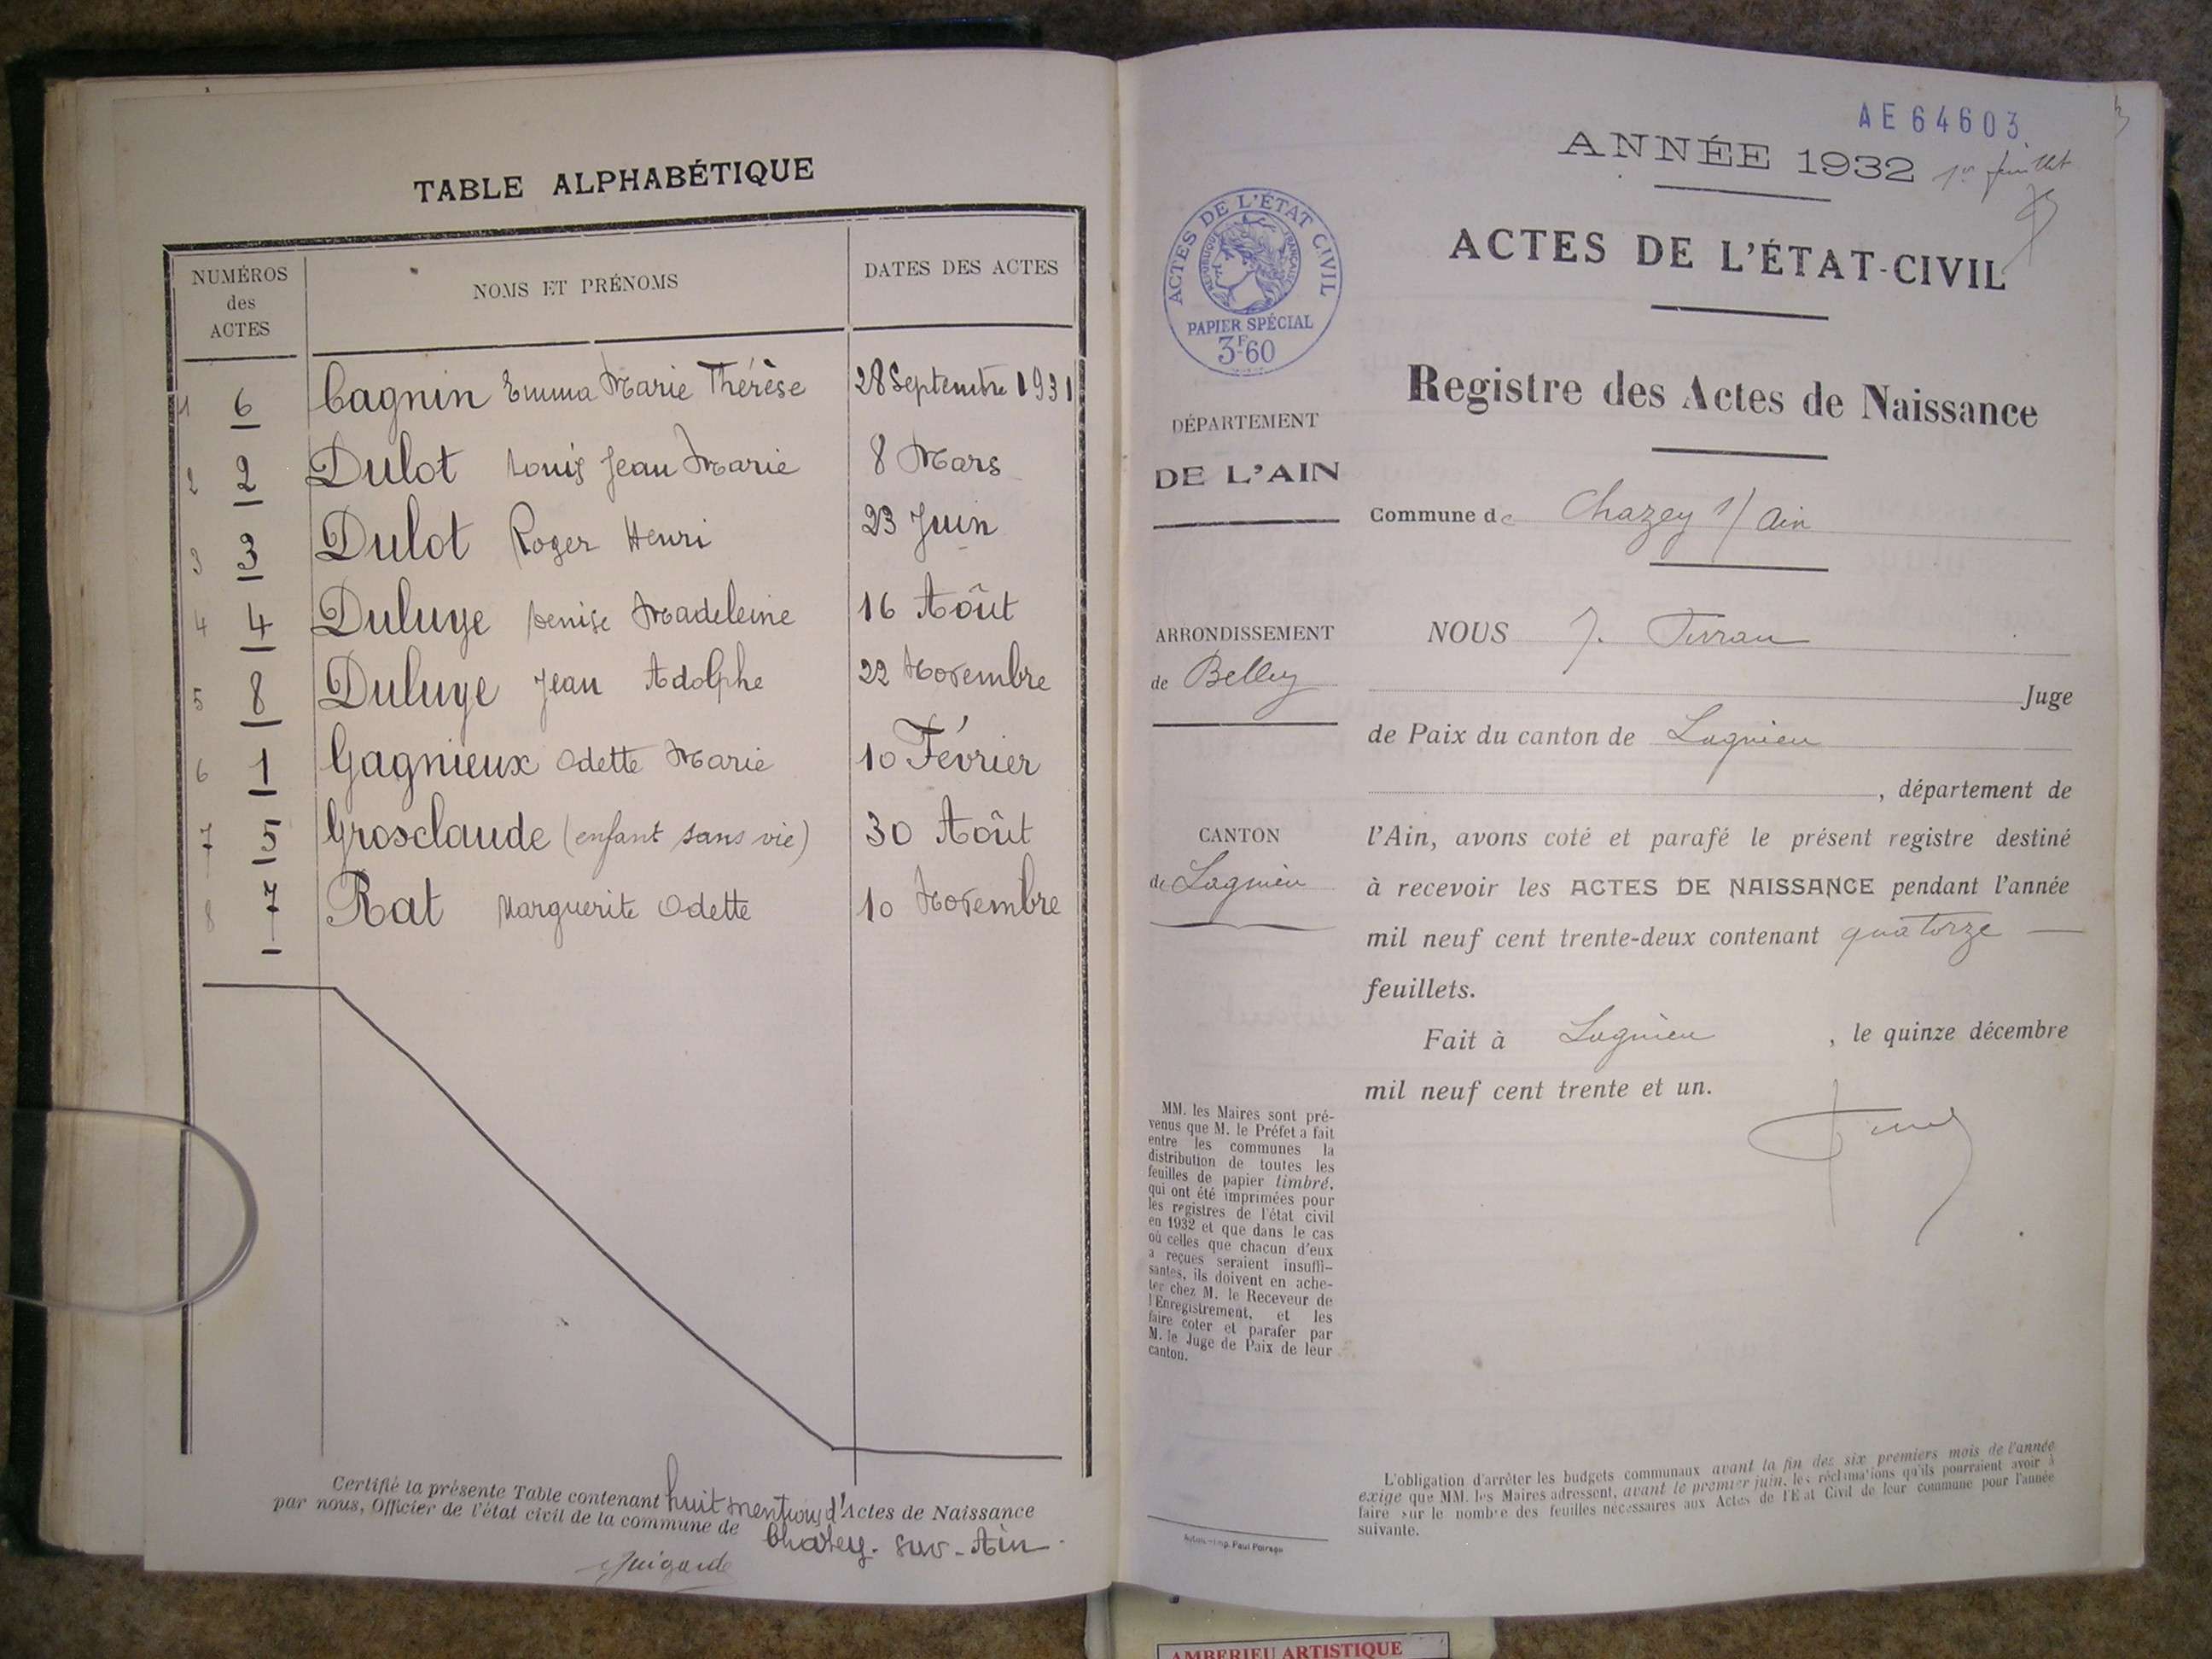 TABLE ALPHABÉTIQUE
NUMÉROS
des
ACTES
NOMS ET PRÉNOMS
DATES DES ACTES
1 6 Cagnin Emma Marie Thérèse 28 Septembre 1931
2 2 Dulot Louis Jean Marie 8 Mars
3 3 Dulot Roger Henri 23 Juin
4 4 Duluye Denise Madeleine 16 Août
5 8 Duluye Jean Adolphe 22 Novembre
6 1 Gagnieux Odette Marie 10 Février
7 5 Grosclaude (enfant sans vie) 30 Août
8 7 Rat Marguerite Odette 10 Novembre
Certifié la présente Table contenant huit mentions d'Actes de Naissance
par nous, Officier de l'état civil de la commune de Chazey-sur-Ain.
AE 64603
ANNÉE 1932 1er feuillet
ACTES DE L'ÉTAT-CIVIL
Registre des Actes de Naissance
ACTES DE L'ÉTAT CIVIL
RÉPUBLIQUE FRANÇAISE
PAPIER SPÉCIAL
3F60
DÉPARTEMENT
DE L'AIN
ARRONDISSEMENT
de Belley
CANTON
de Lagnieu
MM. les Maires sont pré-
venus que M. le Préfet a fait
entre les communes la
distribution de toutes les
feuilles de papier timbré,
qui ont été imprimées pour
les registres de l'état civil
en 1932 et que dans le cas
où celles que chacun d'eux
a reçues seraient insuffi-
santes, ils doivent en ache-
ter chez M. le Receveur de
l'Enregistrement, et les
faire coter et parafer par
M. le Juge de Paix de leur
canton.
Commune de Chazey s/ Ain
NOUS J.
Juge
de Paix du canton de Lagnieu
, département de
l'Ain, avons coté et parafé le présent registre destiné
à recevoir les ACTES DE NAISSANCE pendant l'année
mil neuf cent trente-deux contenant quatorze
feuillets.
Fait à Lagnieu , le quinze décembre
mil neuf cent trente et un.
L'obligation d'arrêter les budgets communaux avant la fin des six premiers mois de l'année
exige que MM. les Maires adressent, avant le premier juin, les réclamations qu'ils pourraient avoir à
faire sur le nombre des feuilles nécessaires aux Actes de l'Etat Civil de leur commune pour l'année
suivante.
AMBERIEU ARTISTIQUE